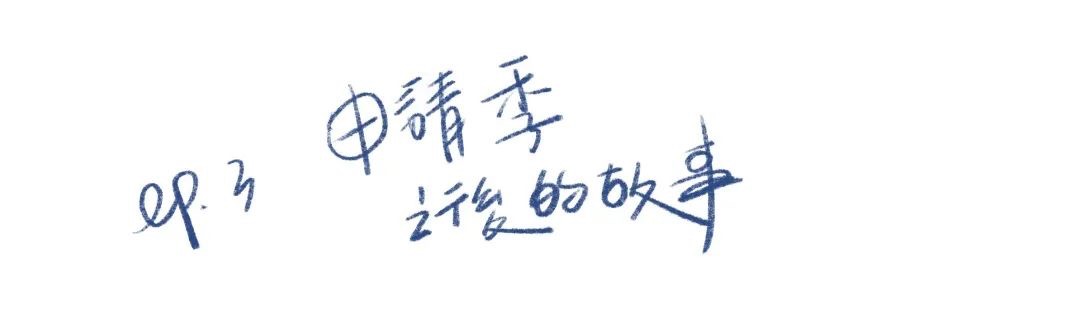 申請季
ep.3
之後的故事